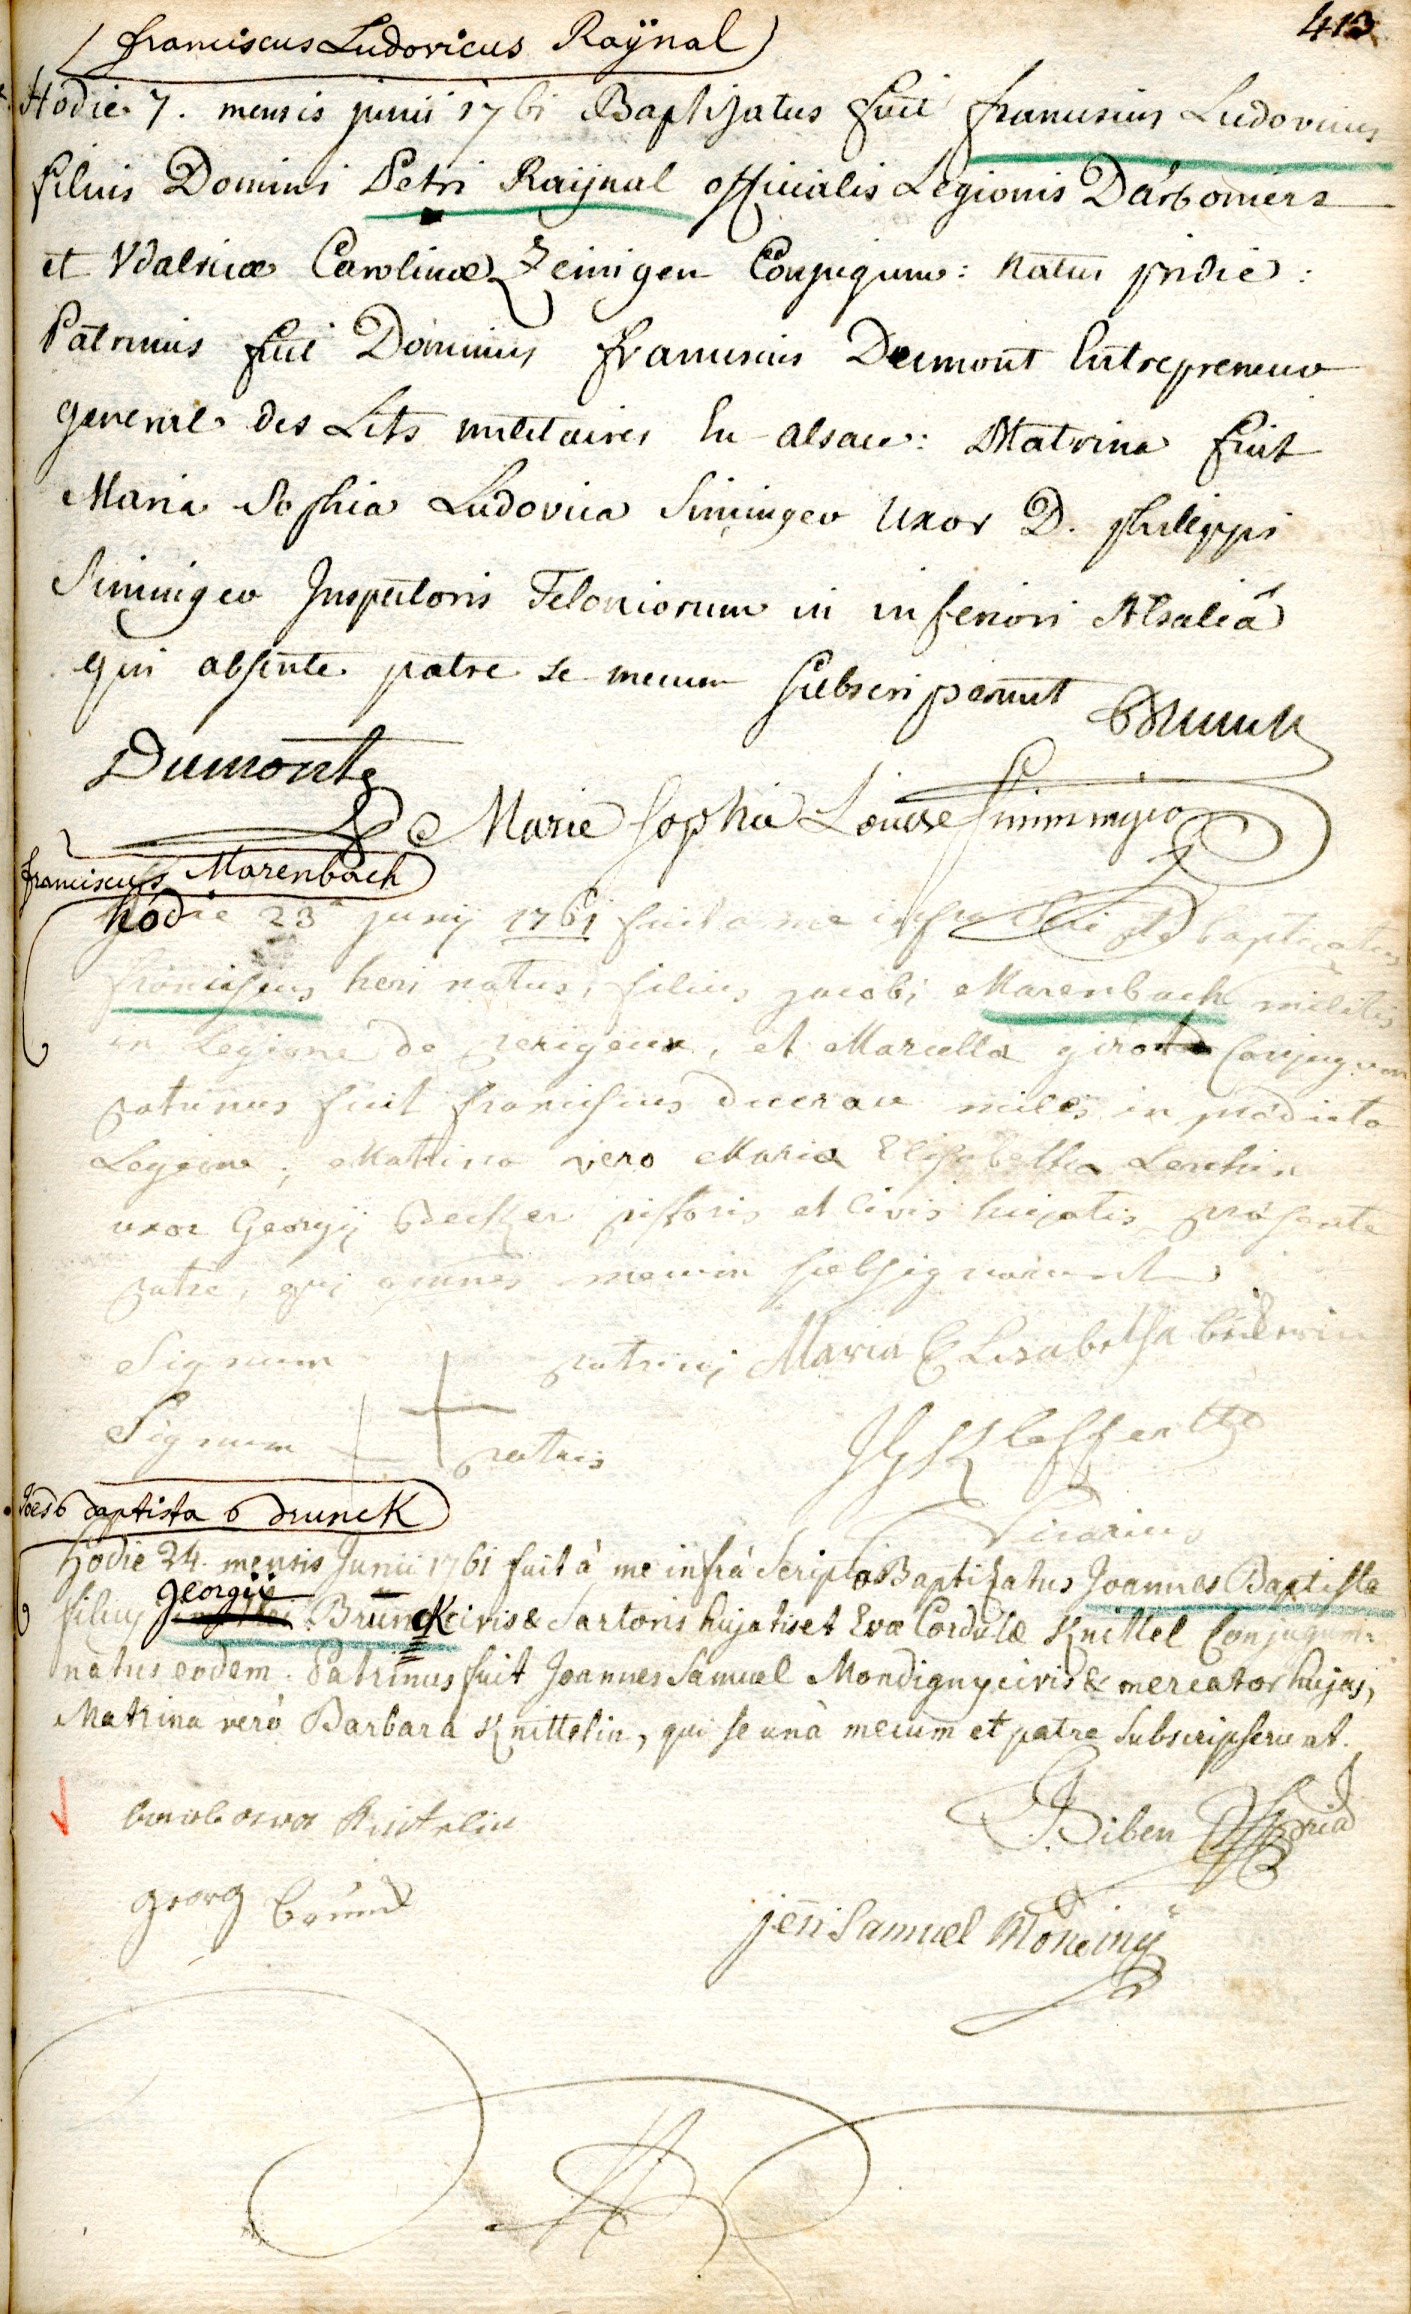 413
franciscus Ludovicus Raÿnal
Hodie 7. mensis junii 1761 Baptizatus fuit franciscus Ludovicus
filius Domini Petri Raijnal officialis Legionis
et Vdalricæ Carolinæ Zeinigen Conjugum: natus pridie:
Patrinus fuit Dominus franciscus Dumont Entrepreneur
general des Lits militaires En alsace: Matrina fuit
Maria Sophia Ludovica Uxor D. philippi
Inspectoris Teloniorum in inferiori Alsatiâ
qui absente patre se mecum subscripserunt
Dumont
Marie Sophie Louise
franciscus Marenbach
hodie 23 junij 1761 fuit a me infra baptizatus
franciscus heri natus, filius jacobi Marenbach militis
in Legione de perigeux, et Marcella Conjugum
patrinus fuit franciscus miles in prædicta
Legione; Matrina vero Maria Elisabetha
uxor Georgij Becker pistoris et Civis hujatis, præsente
patre, qui omnes mecum subsignarunt
Signum patrini Maria Elisabetha
Signum patris
Vicarius
Joes baptista brunck
hodie 24. mensis Junii 1761 fuit à me infrà Scripto Baptizatus Joannes Baptista
Georgii
filius Brunck civis & Sartoris hujatis et Evæ Cordulæ Knittel Conjugum:
natus eodem. Patrinus fuit Joannes Samuel Mondigny civis & mercator hujas,
Matrina verò Barbara Knittelin, qui se unà mecum et patre Subscripserunt.
barbara Knitelin
georg brunck
jen Samuel